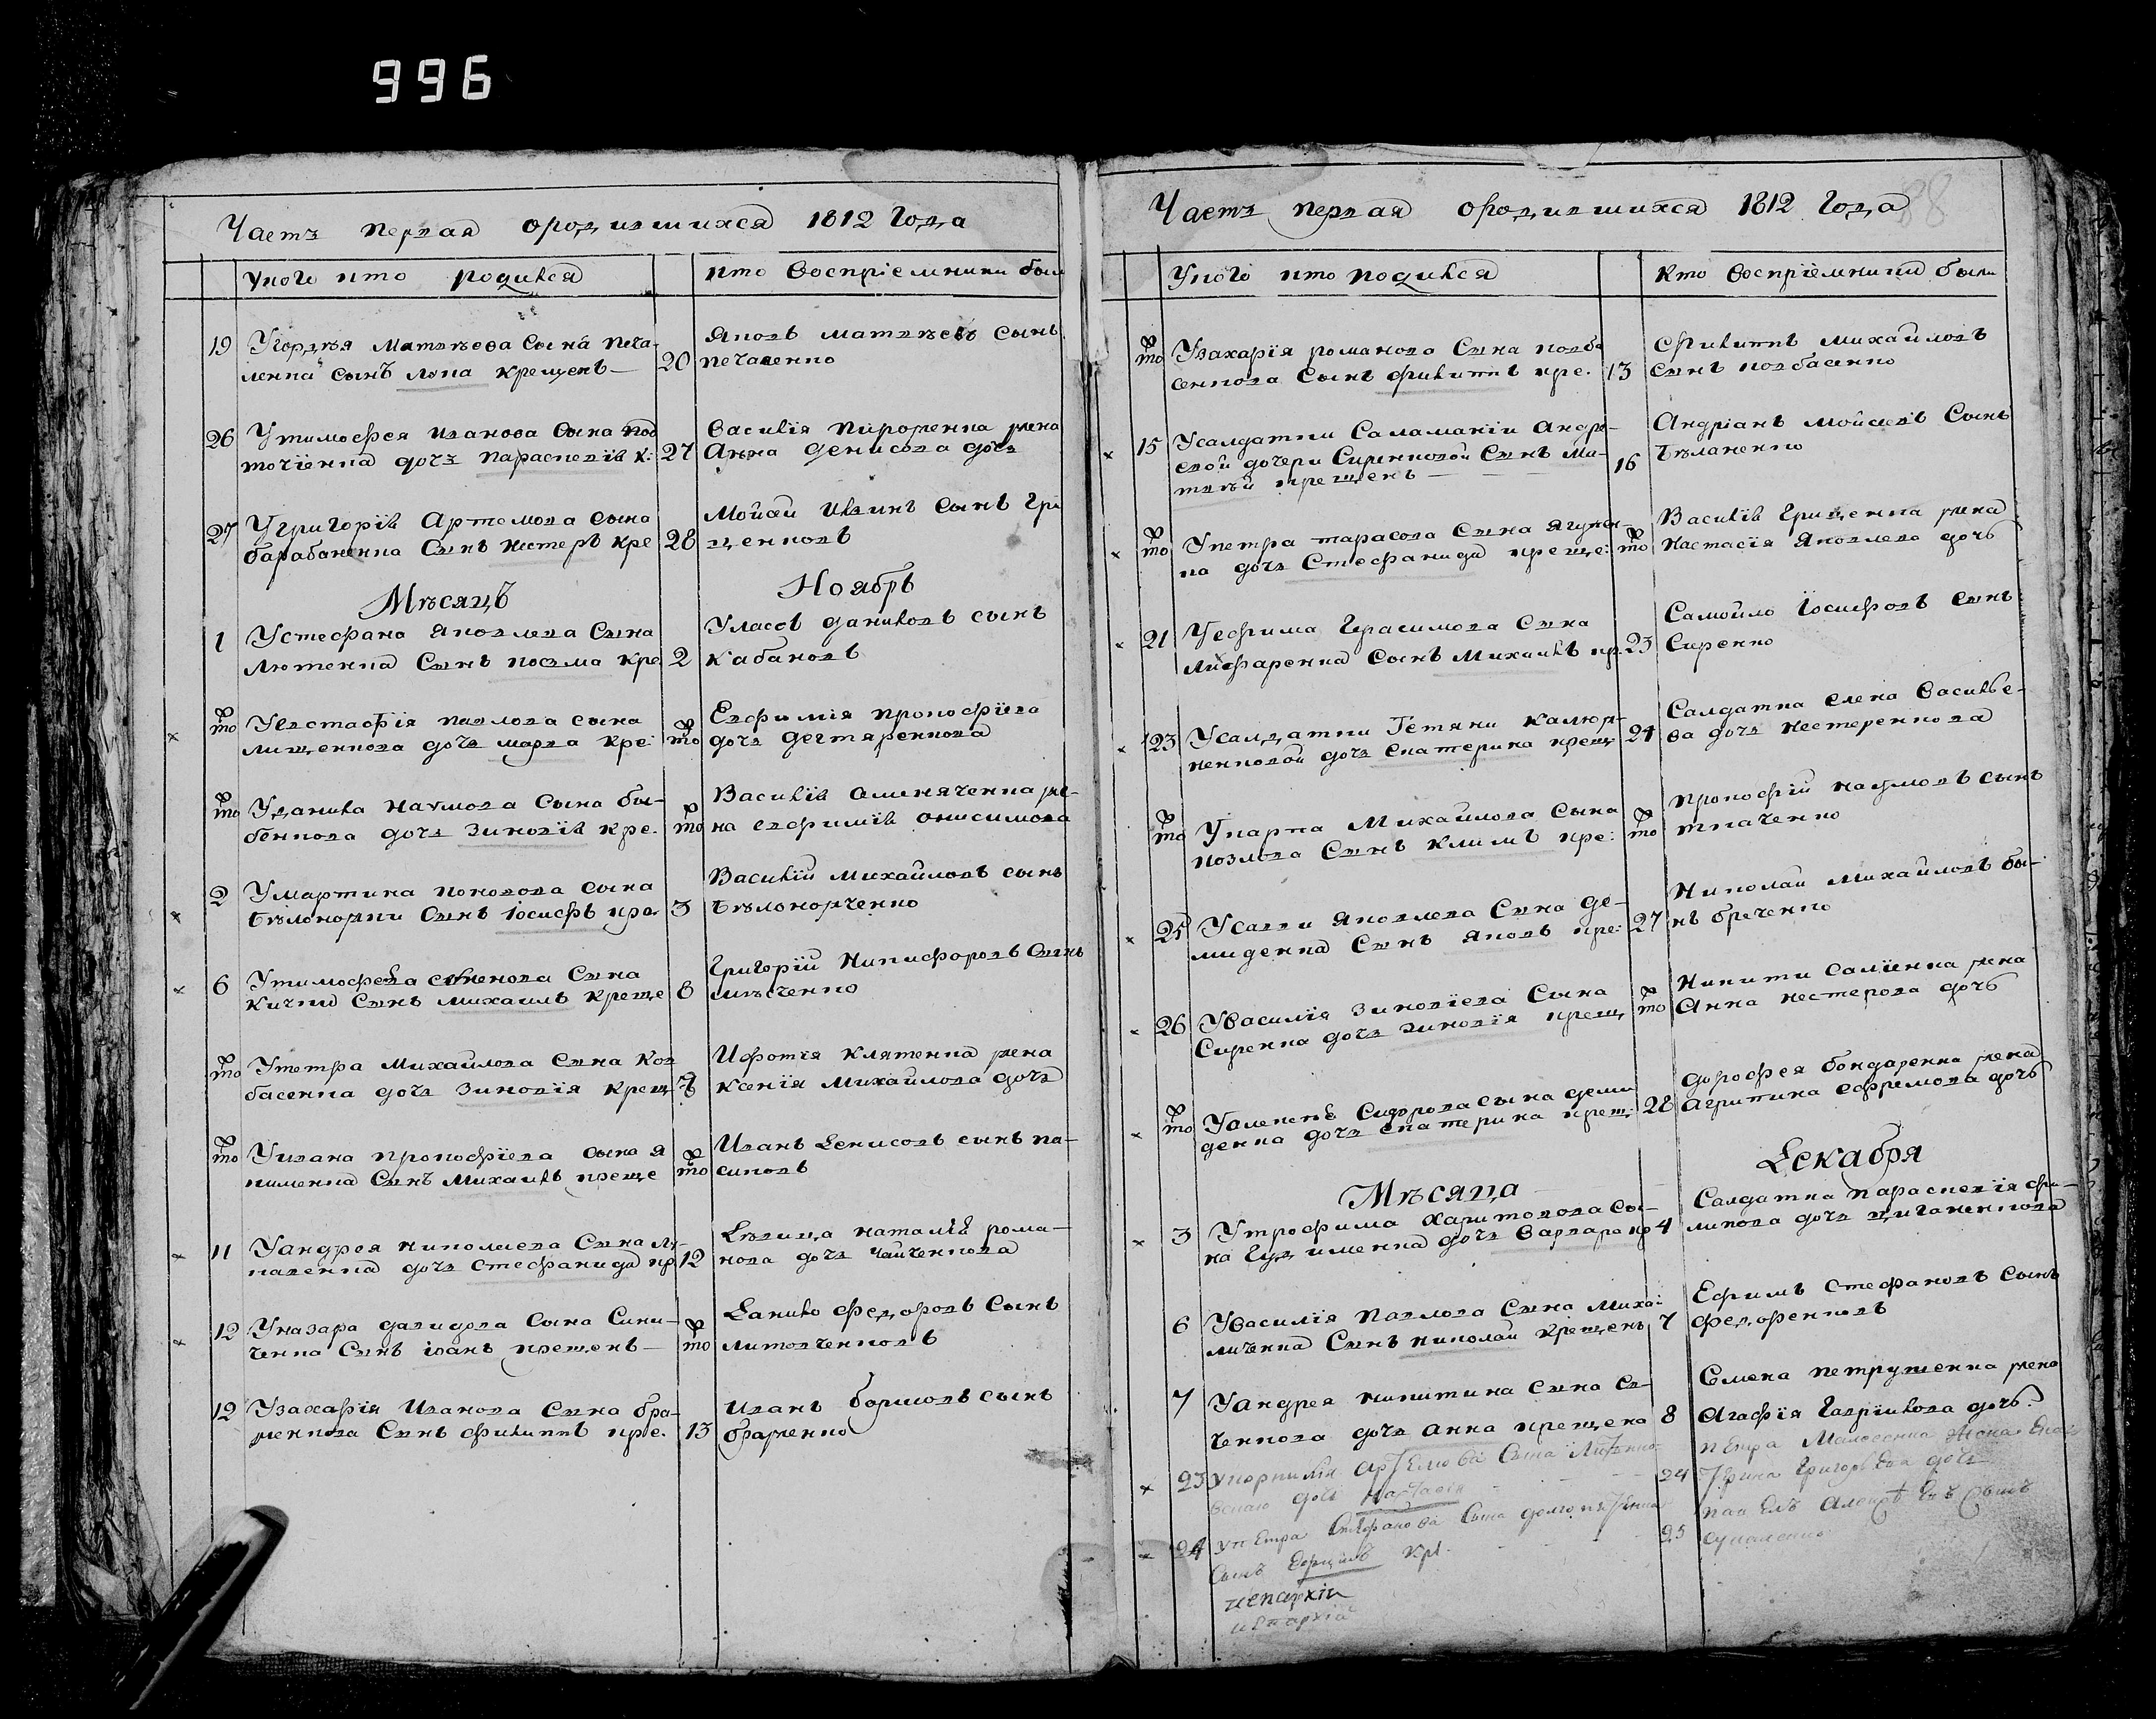 996
Часть первая ородившихся 1812 Года
У кого кто родился
кто воспріемники были
19 У гордѣя Матвѣева Сына печа-
ленка сынъ лука крещенъ
20 Яковъ матвѣевъ сынъ
печаленко
26 У тимофея иванова Сына
дочь параскевія к:
27 Василія жена
Анна денисова дочь
27 У григорія Артемова сына
барабаненка Сынъ нестеръ кре
28 Мойсей Сынъ Гри
щенковъ
Мѣсяцъ Ноябрь
1 У стефана Яковлева Сына
Лютенка Сынъ косма кре
2 Уласовъ даниловъ сынъ
Кабановъ
то У Евстафія павлова сына
лищенкова дочь марѳа кре:
то Евфимія прокофіева
дочь дегтяренкова
то У данила Наумова Сына бы-
бенкова дочь Зиновія кре.
то Василія жена
на евфимія онисимова
2 У мартина кононова сына
бѣлоконки Сынъ Іосифъ кре.
3 Василій Михайловъ сынъ
бѣлоконченко
6 У тимофея Сына
Кички Сынъ Михаилъ Креще
8 Григорій Никифоровъ Сынъ
то У петра Михайлова Сына Кол
басенка дочь Зиновія Крещ
Ксенія Михайлова дочь
то У ивана прокофіева сына я
кименка Сынъ Михаилъ креще
то Иванъ Денисовъ сынъ
11 У андрея николаева Сына
дочь стефанида кр
12 Дѣвица наталія рома-
нова дочь чайченкова
12 У назара давидова Сына Сини-
ченка Сынъ іванъ крещенъ
то Данило федоровъ Сынъ
литовченковъ
12 У захарія Иванова Сына бра-
женкова Сынъ филиппъ кре.
13 Иванъ сынъ
браженко
Часть первая ородившихся 1812 Года
88
У кого кто родился
Кто воспріемники были
то У захарія романова Сына колба
сенкова Сынъ филиппъ кре.
13 Филиппъ михайловъ
Сынъ колбасенко
15 У салдатки Саламаніи Андре-
евой дочери Сиренковой Сынъ Ма-
твѣй крещенъ
16 Андріанъ Мойсеевъ Сынъ
бѣланенко
то У петра тарасова Сына
ка дочь Стефанида креще:
то Василія Грищенка жена
Настасія Яковлева дочь
21 У ефима Герасимова Сына
Сынъ Михаилъ кр.
23 Самойло Іосифовъ Сынъ
Сиренко
23 У салдатки Тетяни
ненковой дочь екатерина крещ
24 Салдатка елена Василье-
ва дочь нестеренкова
то У карпа Михайлова Сына
козлова Сынъ Климъ кре:
то прокофій наумовъ сынъ
ткаченко
25 У савви Яковлева Сына де-
миденка Сынъ яковъ кре:
27 Николай михайловъ
26 У Василія Зиновіева Сына
Сиренка дочь зиновія крещ
то Никити жена
Анна нестерова дочь
то У алексѣя Сидорова сына деми
денка дочь екатерина крещ:
28 Дорофея бондаренка жена
агрипина ефремова дочь
Мѣсяца Декабря
3 У трофима Харитонова сы-
на Гудименка дочь Варвара кр
4 Салдатка параскевія фи-
липова дочь циганенкова
6 У Василія Павлова Сына Михай
личенка Сынъ николай крещенъ
7 Ефимъ Стефановъ Сынъ
федоренковъ
7 У андрея никитина сына
ченкова дочь анна крещена
8 Семена петрушенка жена
Агафія Гавриилова дочь
23 У корнилія Артемова Сына
дочь настасія
24 петра жена
Ірина Григорьева дочь
24 У петра Стефанова Сына
Сынъ Ефимъ кре.
25 павелъ
епархіи
епархіи